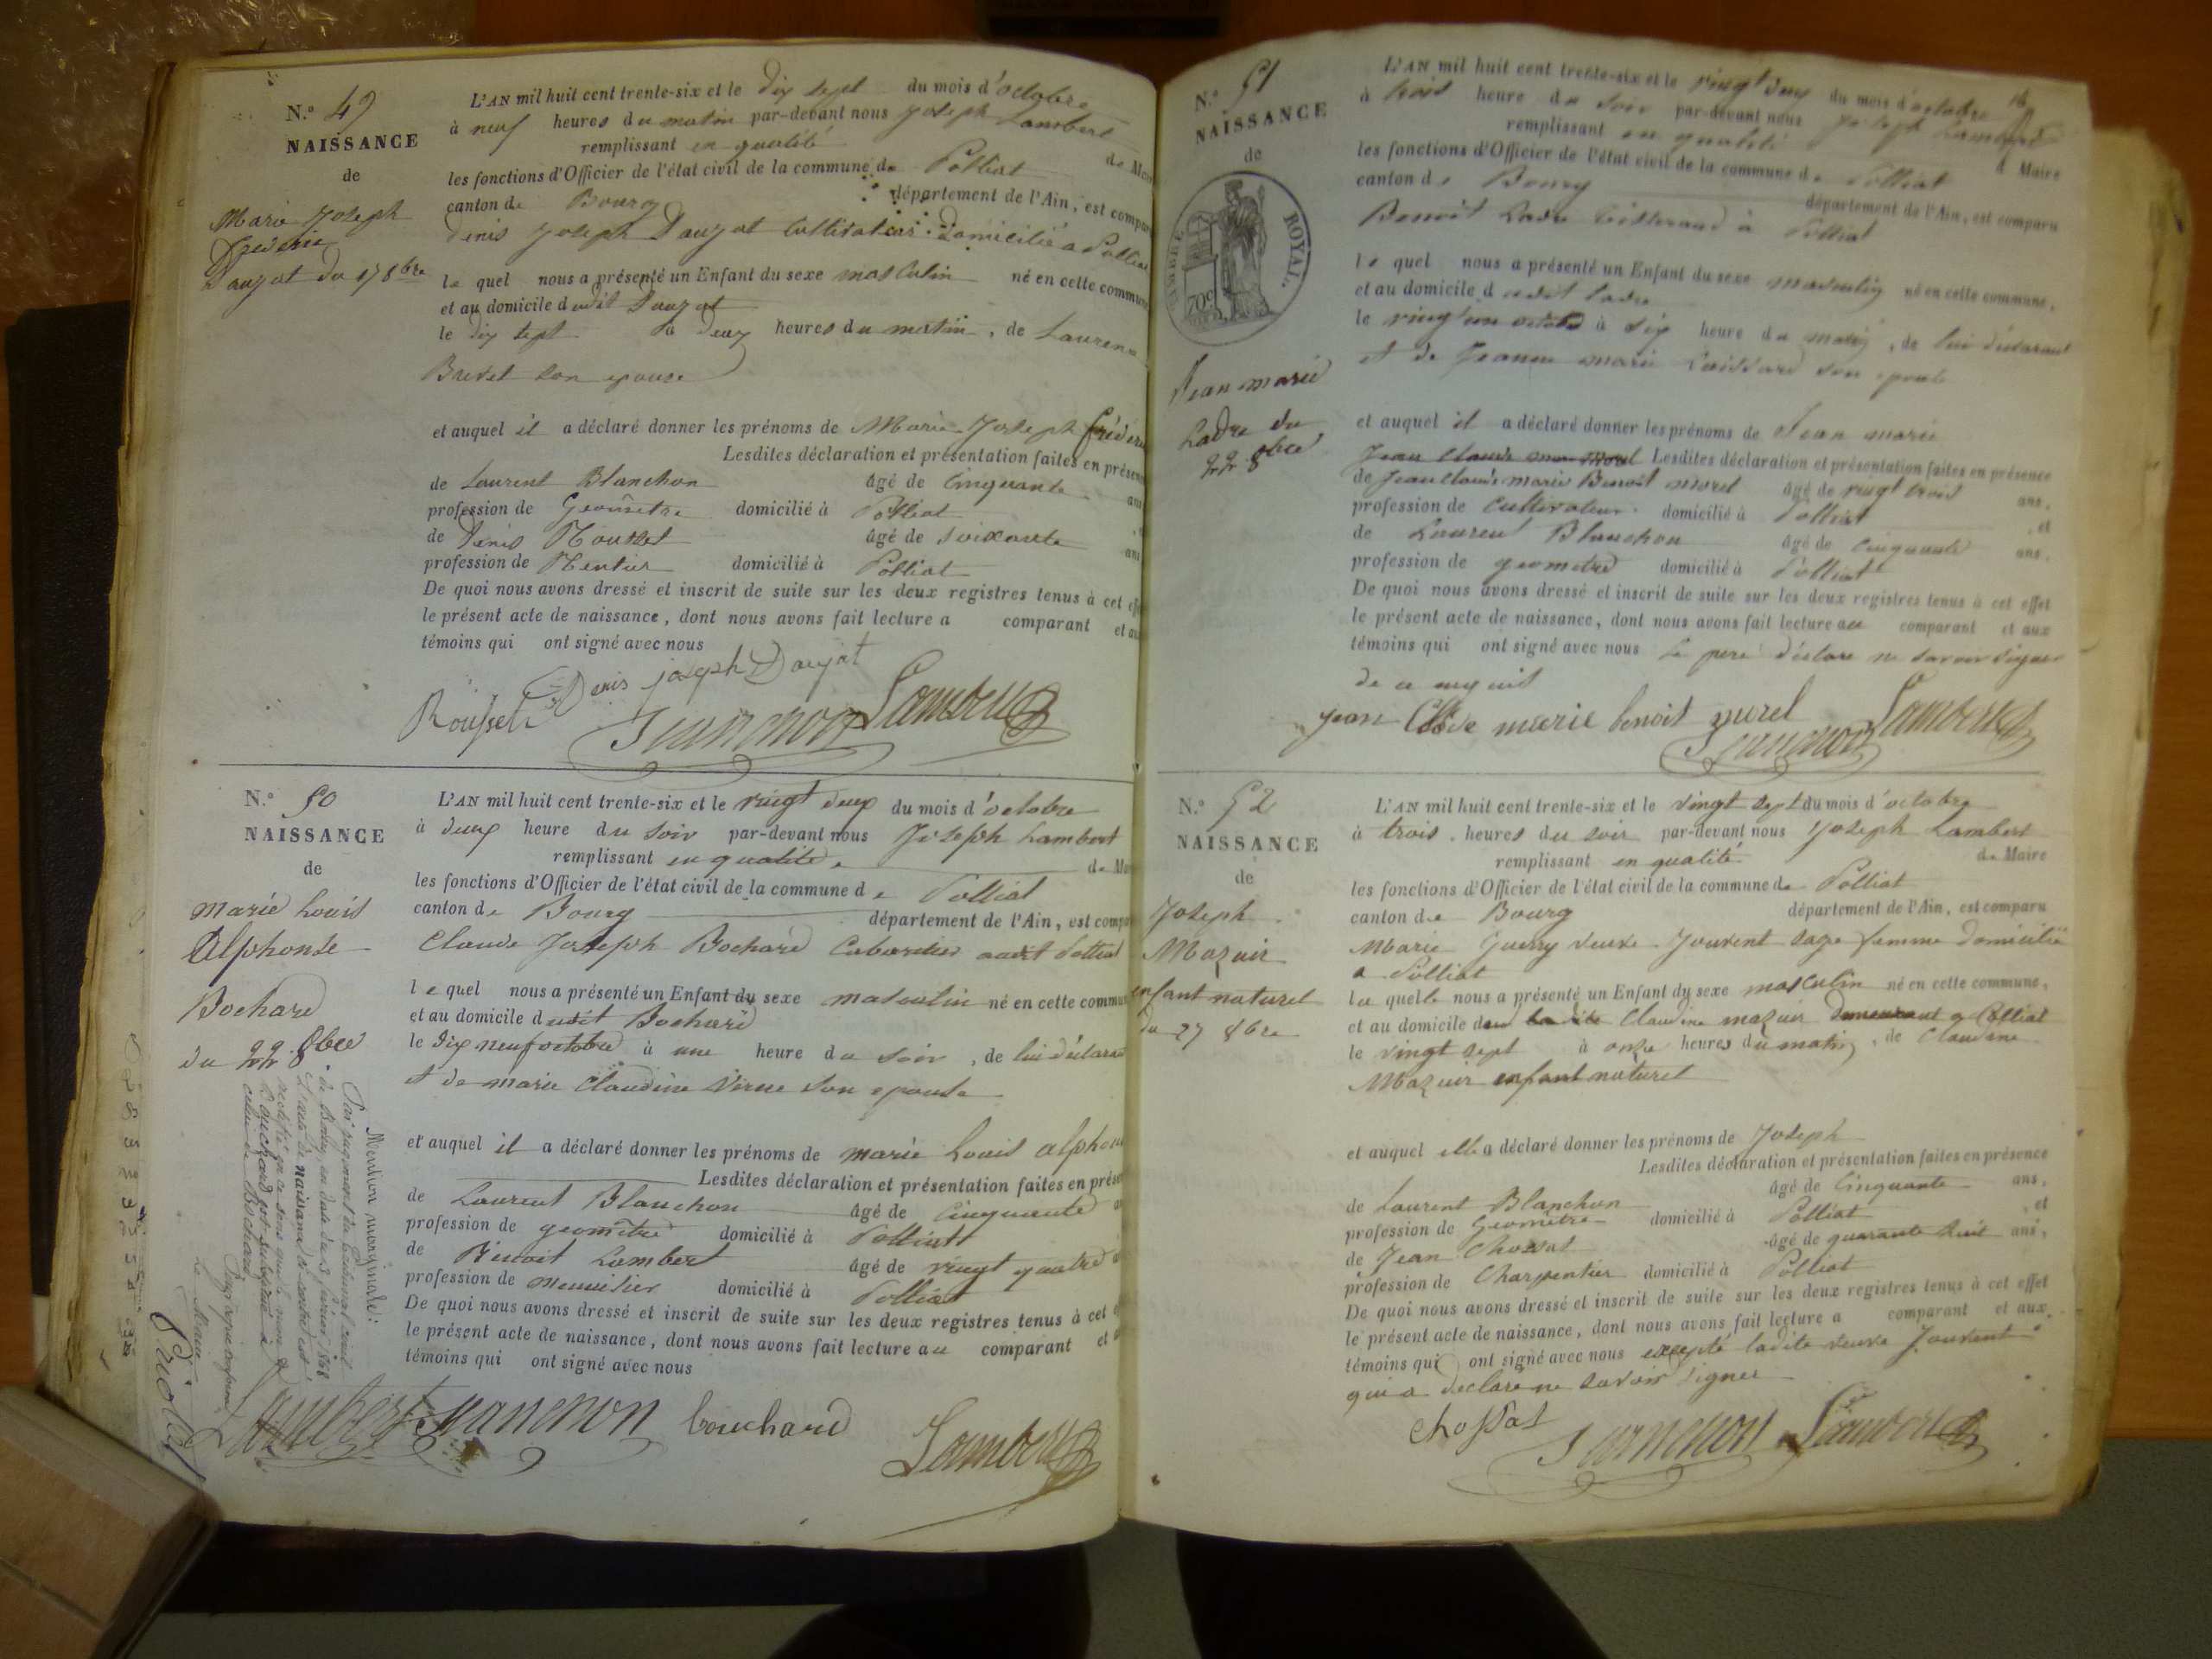 N.° 49
NAISSANCE
de
Marie Joseph
Frédéric
Daujat du 17 8bre
L'AN mil huit cent trente-six et le dix sept du mois d'octobre
à neuf heures du matin par-devant nous Joseph Lambert
remplissant en qualité de Mai
les fonctions d'Officier de l'état civil de la commune de Polliat
canton de Bourg département de l'Ain, est compar
Denis Joseph Daujat Cultivateur Domicilié a Polliat
le quel nous a présenté un Enfant du sexe masculin né en cette commune
et au domicile dudit Daujat
le dix sept à deux heures du matin, de Laurence
Brevet son epouse
et auquel il a déclaré donner les prénoms de Marie Joseph Fréderic
Lesdites déclaration et présentation faites en présen
de Laurent Blanchon âgé de Cinquante ans
profession de Geomêtre domicilié à Polliat
de Denis Rousset âgé de soixante ans
profession de Rentier domicilié à Polliat
De quoi nous avons dressé et inscrit de suite sur les deux registres tenus à cet effe
le présent acte de naissance, dont nous avons fait lecture a comparant et au
témoins qui ont signé avec nous
Denis joseph Daujat
Rousset Blanchon Lambert
N.° 50
NAISSANCE
de
Marie Louis
Alphonse
Bochard
du 22 8bre
Mention marginale:
Par jugement du tribunal civil
L'AN mil huit cent trente-six et le vingt deux du mois d'octobre
à deux heure du soir par-devant nous Joseph Lambert
remplissant en qualité de Mai
les fonctions d'Officier de l'état civil de la commune de Polliat
canton de Bourg département de l'Ain, est compa
Claude Joseph Bochard Cabaretier audit Polliat
le quel nous a présenté un Enfant du sexe masculin né en cette commun
et au domicile dudit Bochard
le dix neuf octobre à une heure du soir, de lui déclarant
et de marie Claudine Virue son epouse
et auquel il a déclaré donner les prénoms de marie Louis alphons
Lesdites déclaration et présentation faites en prése
de Laurent Blanchon âgé de Cinquante
profession de geomêtre domicilié à Polliat
de Benoit Lambert âgé de vingt quatre
profession de menuisier domicilié à Polliat
De quoi nous avons dressé et inscrit de suite sur les deux registres tenus à cet
le présent acte de naissance, dont nous avons fait lecture au comparant et
témoins qui ont signé avec nous
Lambert Blanchon bouchard Lambert
N.° 51
NAISSANCE
de
TIMBRE ROYAL
70c
Jean marie
Ladre du
22 8bre
L'AN mil huit cent trente-six et le vingt deux du mois d'octobre
à trois heure du soir par-devant nous Joseph Lambert
remplissant en qualité de Maire
les fonctions d'Officier de l'état civil de la commune de Polliat
canton de Bourg département de l'Ain, est comparu
Benoit Ladre tisserand à Polliat
le quel nous a présenté un Enfant du sexe masculin né en cette commune,
et au domicile dudit Ladre
le vingt un octobre à six heure du matin, de lui déclarant
et de Jeanne marie son epouse
et auquel il a déclaré donner les prénoms de Jean marie
Jean Claude Lesdites déclaration et présentation faites en présence
de Jean Claude marie Benoit morel âgé de vingt trois ans,
profession de Cultivateur domicilié à Polliat et
de Laurent Blanchon âgé de Cinquante ans,
profession de geometre domicilié à Polliat
De quoi nous avons dressé et inscrit de suite sur les deux registres tenus à cet effet
le présent acte de naissance, dont nous avons fait lecture au comparant et aux
témoins qui ont signé avec nous Le pere déclare ne savoir signer
de ce enquis
jean Clode marie benoit morel Blanchon Lambert
N.° 52
NAISSANCE
de
Joseph
Mazuir
enfant naturel
du 27 8bre
L'AN mil huit cent trente-six et le vingt sept du mois d'octobre
à trois heures du soir par-devant nous Joseph Lambert
remplissant en qualité de Maire
les fonctions d'Officier de l'état civil de la commune de Polliat
canton de Bourg département de l'Ain, est comparu
Marie Guerry veuve Jouvent sage femme domicilié
a Polliat
la quelle nous a présenté un Enfant du sexe masculin né en cette commune,
et au domicile de la dite Claudine mazuir demeurant a Polliat
le vingt sept à onze heures du matin, de Claudine
Mazuir enfant naturel
et auquel elle a déclaré donner les prénoms de Joseph
Lesdites déclaration et présentation faites en présence
de Laurent Blanchon âgé de Cinquante ans,
profession de Geomêtre domicilié à Polliat, et
de Jean Chossat âgé de quarante huit ans,
profession de Charpentier domicilié à Polliat
De quoi nous avons dressé et inscrit de suite sur les deux registres tenus à cet effet
le présent acte de naissance, dont nous avons fait lecture a comparant et aux
témoins qui ont signé avec nous excepté ladite veuve Jouvent
qui a déclaré ne savoir signer
Chossat Blanchon Lambert